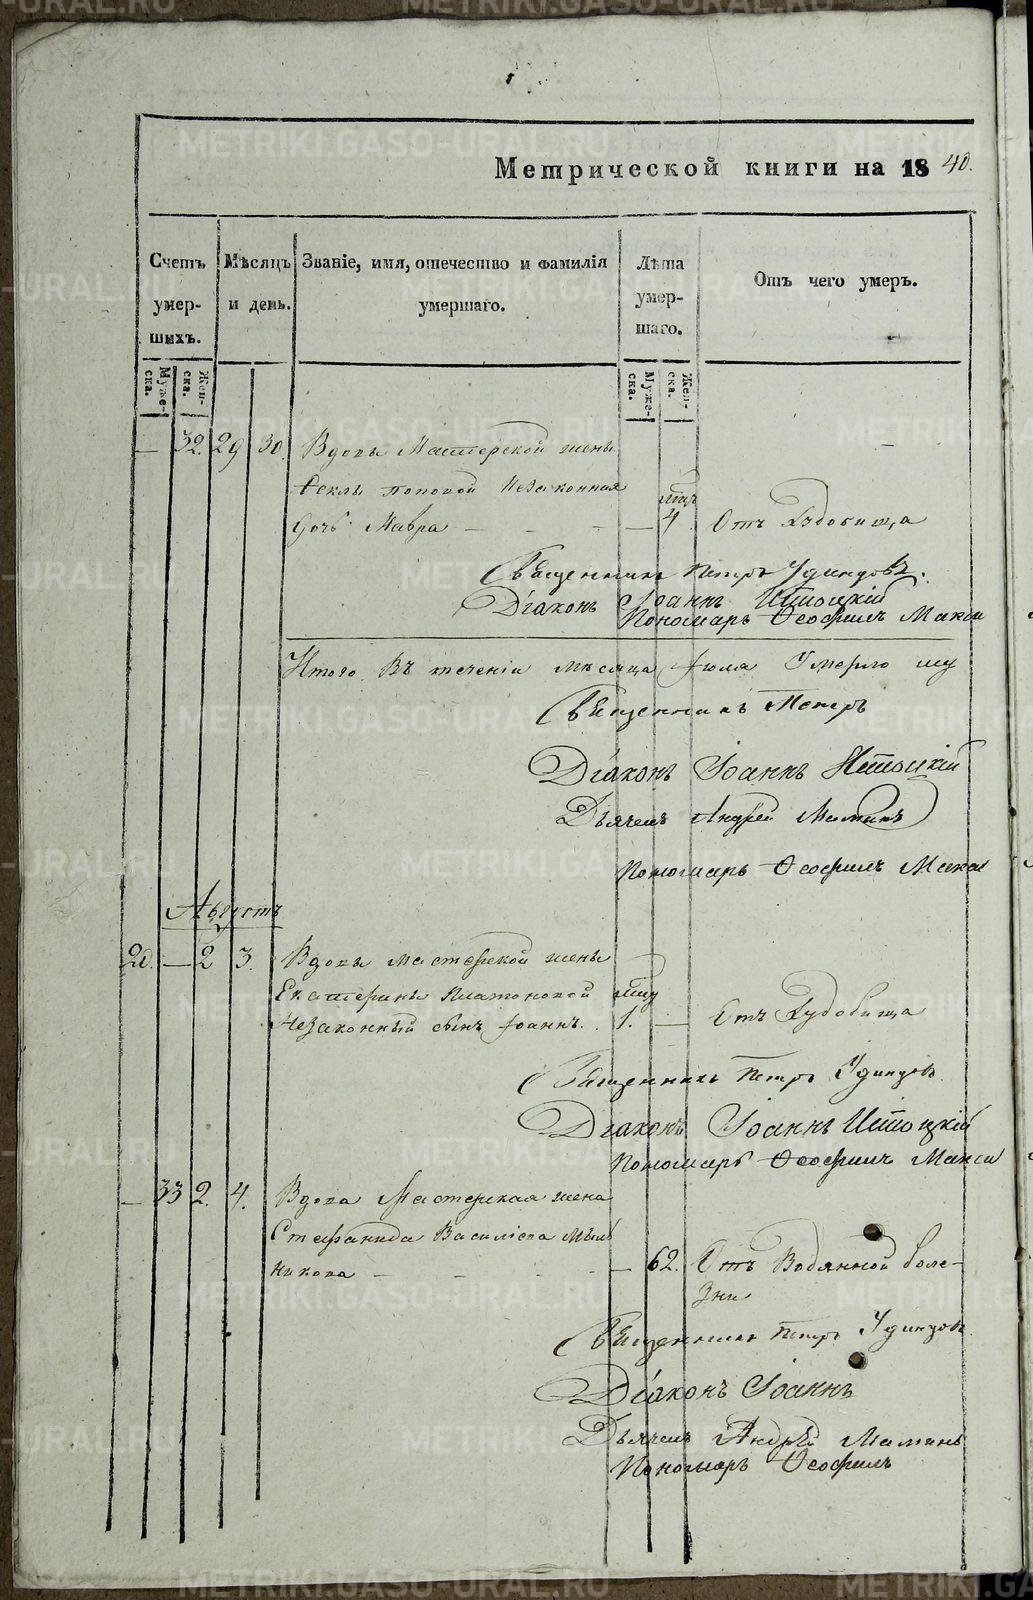 Метрической книги на 1840.
Счетъ умер-шихъ.
Мѣсяцъ и день.
Званіе, имя, отечество и фамилія умершаго.
Лѣта умер-шаго.
Отъ чего умеръ.
Муже-ска.
Жен-ска.
Муже-ска.
Жен-ска.
— 32. 29 30. Вдовы Мастерской жены
Феклы Поповой Незаконная
дочь Мавра — — — 4 Отъ Худобища
Священникъ Петръ Удинцовъ.
Діаконъ Іоаннъ
Пономарь Ѳеофилъ
Итого Въ теченіи мѣсяца Іюля Умерло му
Священникъ Петръ
Діаконъ Іоаннъ
Дьячекъ Андрей Маминъ
Пономарь Ѳеофилъ
Августъ
20. — 2 3. Вдовы мастерской жены
Екатерины Платоновой
Незаконный сынъ Іоаннъ. 1. — Отъ Худобища
Священникъ Петръ Удинцовъ
Діаконъ Іоаннъ
Пономарь Ѳеофилъ
— 33 2. 4. Вдова Мастерская жена
Стефанида Василіева Мыль
никова — — — — 62. Отъ Водянной боле-
зни
Священникъ Петръ Удинцовъ
Діаконъ Іоаннъ
Дьячекъ Андрей Маминъ
Пономарь Ѳеофилъ
METRIKI.GASO-URAL.RU